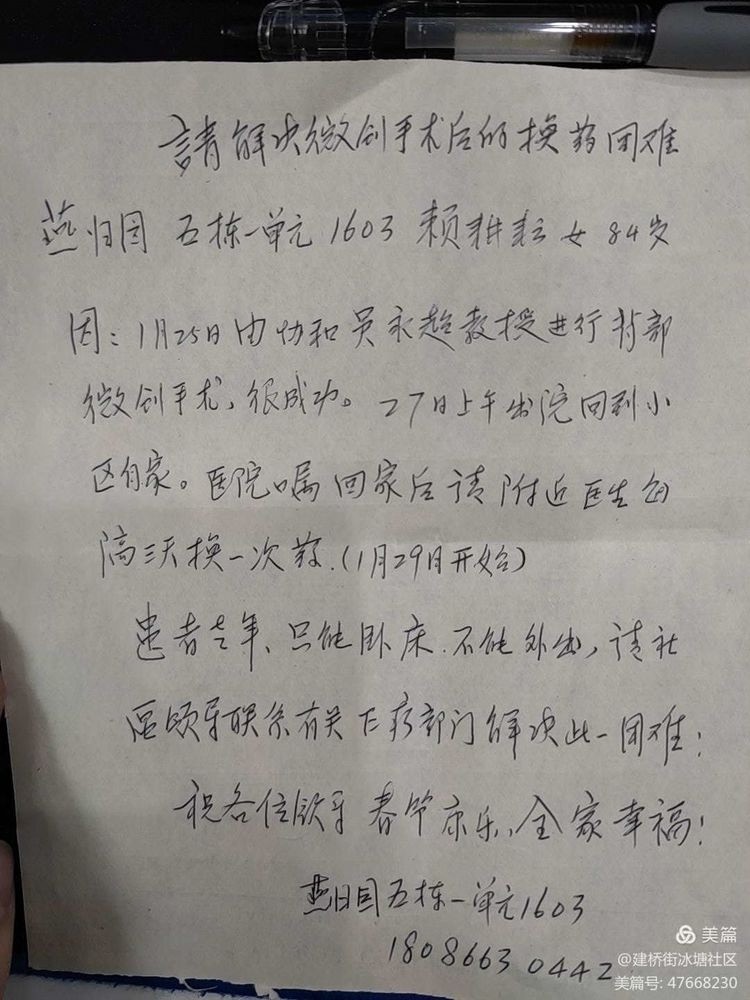 請解决微创手术后的换药困难
燕归园 五栋一单元1603 赖耕耘 女 84岁
因：1月25日由协和吴永超教授进行背部
微创手术，很成功。27日上午出院回到小
区自家。医院嘱回家后请附近医生每
隔三天换一次药.(1月29日开始)
患者老年、只能卧床.不能外出，请社
区领导联系有关医疗部门解决此一困难！
祝各位领导春节康乐、全家幸福！
燕归园五栋一单元1603
18086630442
美篇
@建桥街冰塘社区
美篇号: 47668230